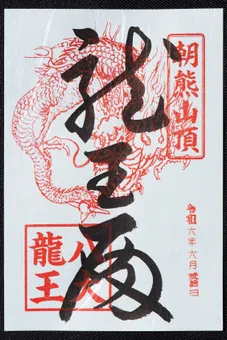 朝熊山頂
龍王殿
八大
龍王
令和六年六月